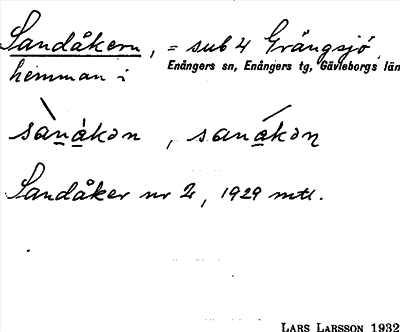 Sandåkern, = sub 4 Grängsjö
hemman i Enångers sn, Enångers tg, Gävleborgs län
sanákən, sanákən
Sandåker nr 2, 1929 mtl.
LARS LARSSON 1932